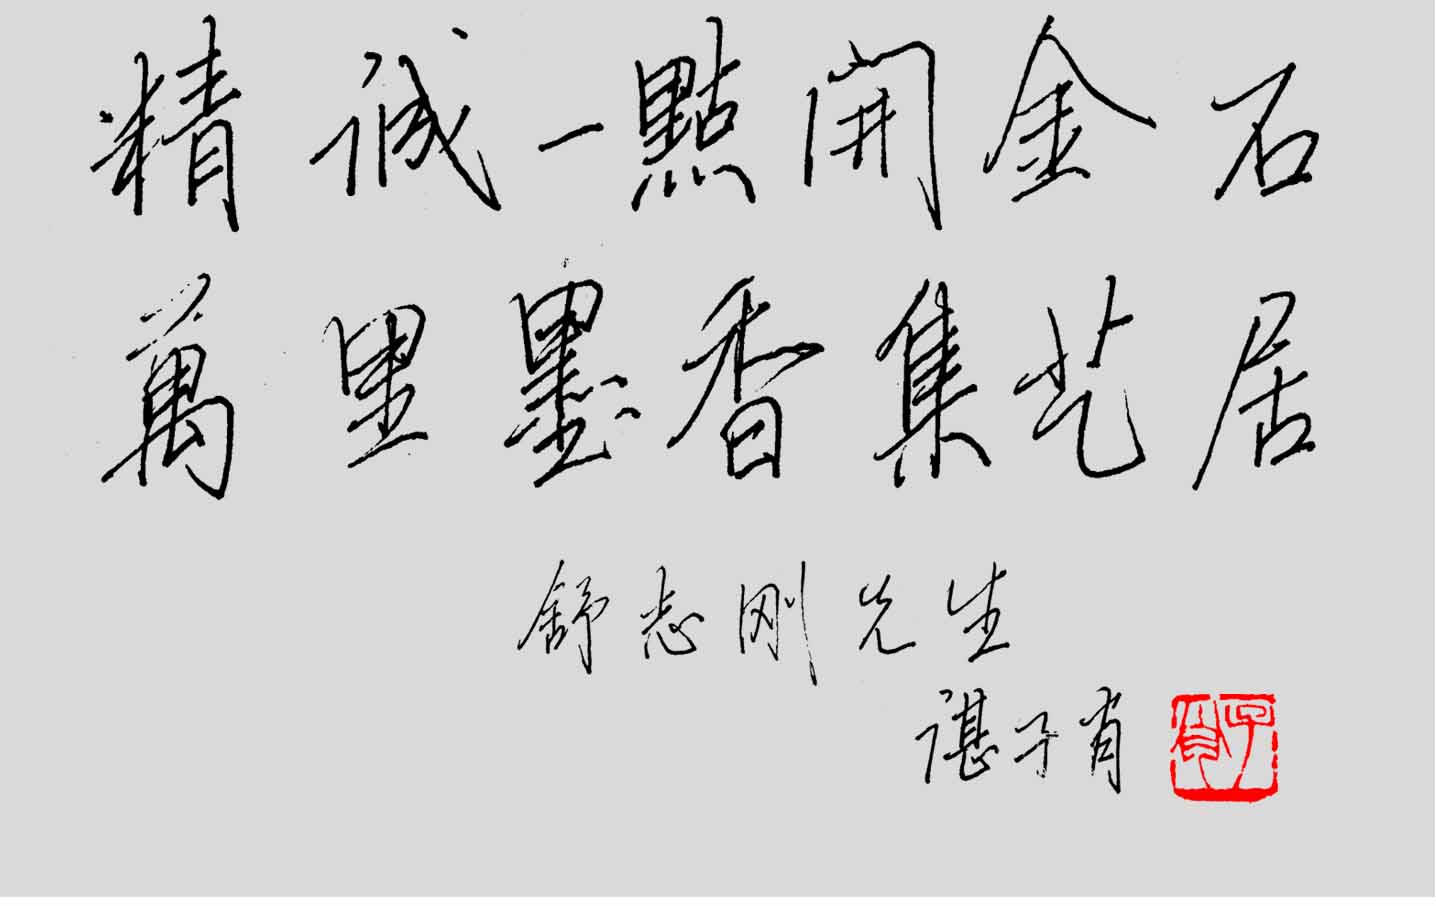 精诚一點開金石
萬里墨香集艺居
舒志刚先生
谌子肖
子肖